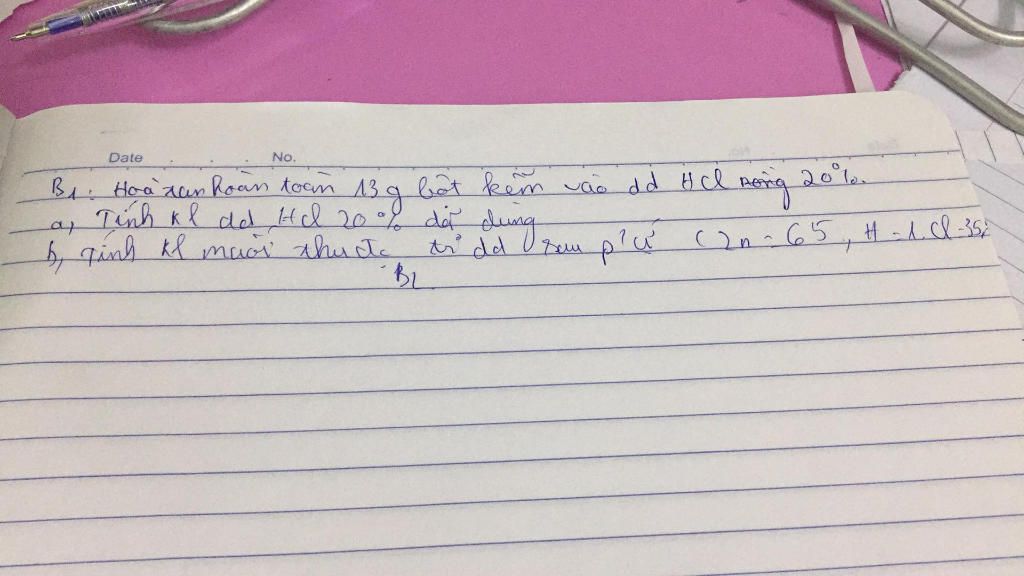 Date . . . No.
B1: Hoà tan hoàn toàn 13g bột kẽm vào dd HCl 20%.
a, Tính kl dd HCl 20% đã dùng
b, Tính kl muối thu đc từ dd sau p/ứ (Zn = 65, H = 1, Cl = 35,
B2